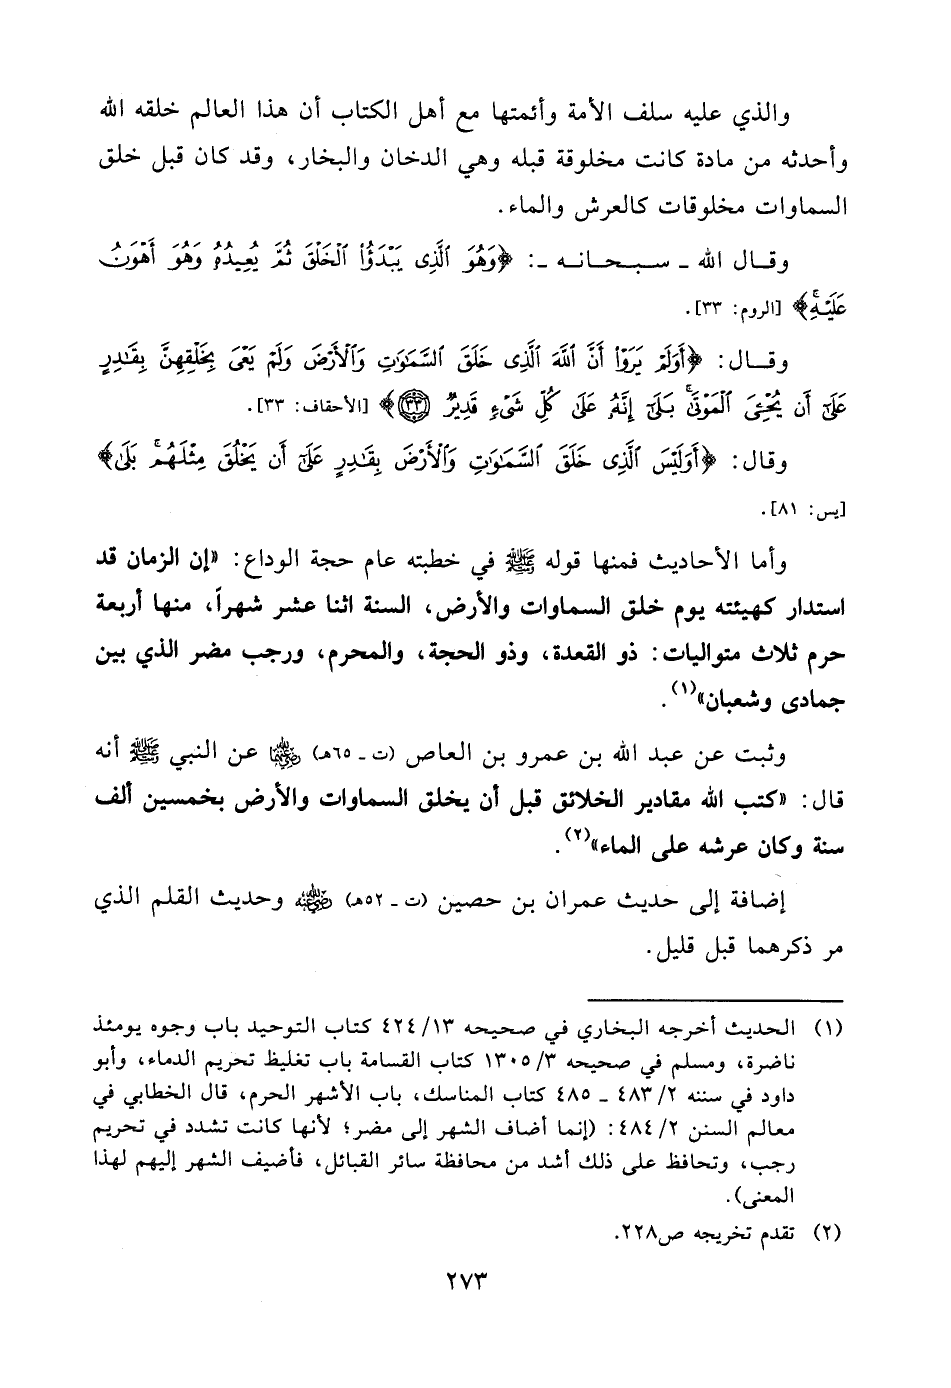 والذي عليه سلف الأمة وأئمتها مع أهل الكتاب أن هذا العالم خلقه الله
وأحدثه من مادة كانت مخلوقة قبله وهي الدخان والبخار، وقد كان قبل خلق
السماوات مخلوقات كالعرش والماء.
وقـال الله ـ سـبـحـانـه ـ: ﴿وَهُوَ ٱلَّذِى يَبْدَؤُا۟ ٱلْخَلْقَ ثُمَّ يُعِيدُهُۥ وَهُوَ أَهْوَنُ
عَلَيْهِ ۚ﴾ [الروم: ٣٣].
وقـال: ﴿أَوَلَمْ يَرَوْا۟ أَنَّ ٱللَّهَ ٱلَّذِى خَلَقَ ٱلسَّمَٰوَٰتِ وَٱلْأَرْضَ وَلَمْ يَعْىَ بِخَلْقِهِنَّ بِقَٰدِرٍ
عَلَىٰٓ أَن يُحْۦِىَ ٱلْمَوْتَىٰ ۚ بَلَىٰٓ إِنَّهُۥ عَلَىٰ كُلِّ شَىْءٍ قَدِيرٌ ٣٣﴾ [الأحقاف: ٣٣].
وقال: ﴿أَوَلَيْسَ ٱلَّذِى خَلَقَ ٱلسَّمَٰوَٰتِ وَٱلْأَرْضَ بِقَٰدِرٍ عَلَىٰٓ أَن يَخْلُقَ مِثْلَهُم ۚ بَلَىٰ﴾
[يس: ٨١].
وأما الأحاديث فمنها قوله ﷺ في خطبته عام حجة الوداع: «إن الزمان قد
استدار كهيئته يوم خلق السماوات والأرض، السنة اثنا عشر شهراً، منها أربعة
حرم ثلاث متواليات: ذو القعدة، وذو الحجة، والمحرم، ورجب مضر الذي بين
جمادى وشعبان»(١).
وثبت عن عبد الله بن عمرو بن العاص (ت ـ ٦٥هـ) رضي الله عنهما عن النبي ﷺ أنه
قال: «كتب الله مقادير الخلائق قبل أن يخلق السماوات والأرض بخمسين ألف
سنة وكان عرشه على الماء»(٢).
إضافة إلى حديث عمران بن حصين (ت ـ ٥٢هـ) رضي الله عنه وحديث القلم الذي
مر ذكرهما قبل قليل.
(١) الحديث أخرجه البخاري في صحيحه ٤٢٤/١٣ كتاب التوحيد باب وجوه يومئذ
ناضرة، ومسلم في صحيحه ١٣٠٥/٣ كتاب القسامة باب تغليظ تحريم الدماء، وأبو
داود في سننه ٤٨٣/٢ ـ ٤٨٥ كتاب المناسك، باب الأشهر الحرم، قال الخطابي في
معالم السنن ٤٨٤/٢: (إنما أضاف الشهر إلى مضر؛ لأنها كانت تشدد في تحريم
رجب، وتحافظ على ذلك أشد من محافظة سائر القبائل، فأضيف الشهر إليهم لهذا
المعنى).
(٢) تقدم تخريجه ص٢٢٨.
٢٧٣